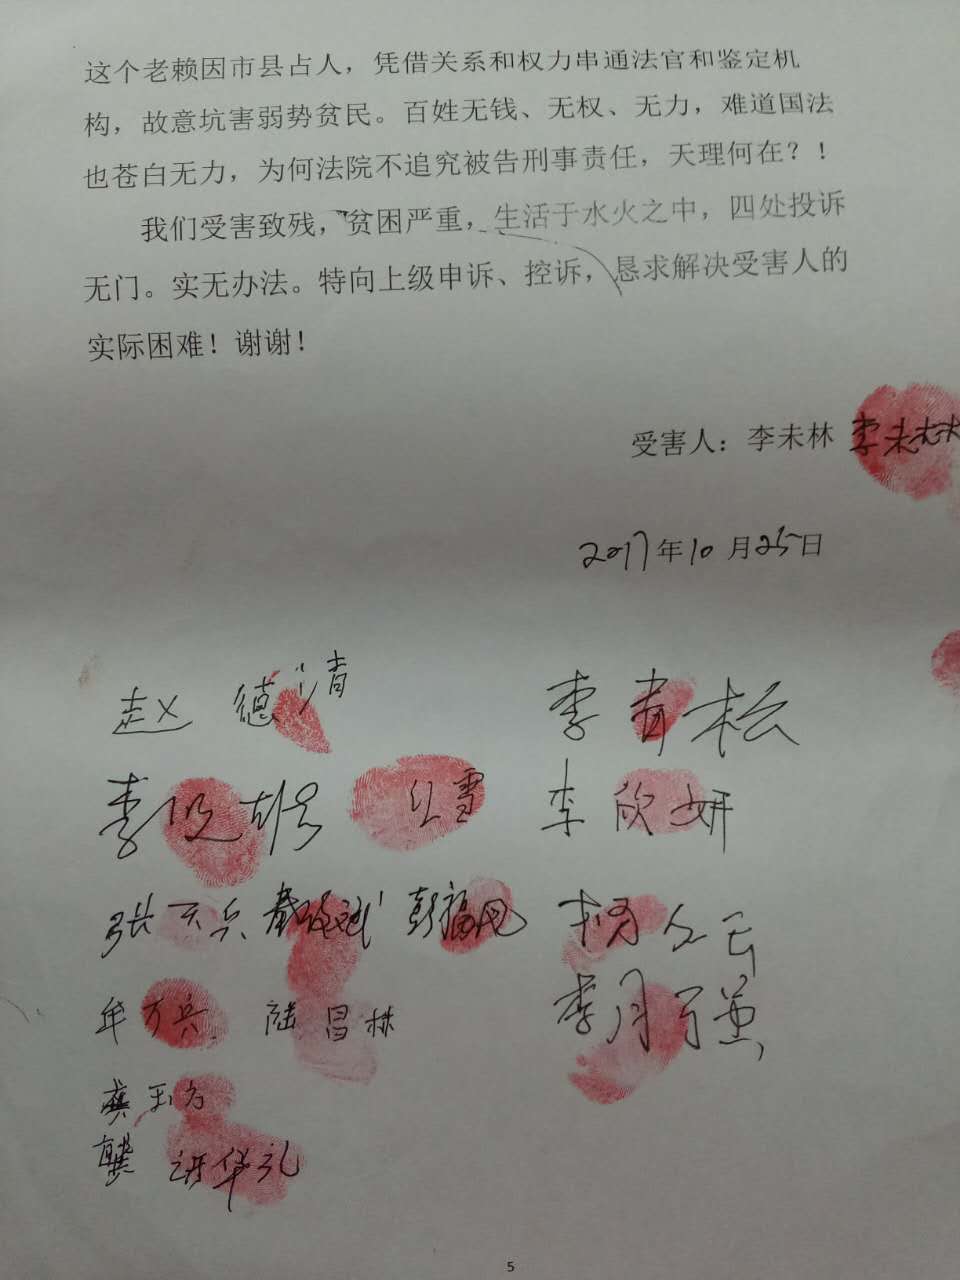 这个老赖因市县占人，凭借关系和权力串通法官和鉴定机
构，故意坑害弱势贫民。百姓无钱、无权、无力，难道国法
也苍白无力，为何法院不追究被告刑事责任，天理何在？！
我们受害致残，贫困严重，生活于水火之中，四处投诉
无门。实无办法。特向上级申诉、控诉，恳求解决受害人的
实际困难！谢谢！
受害人：李未林 李未林
2017年10月25日
赵德清 李青松
李 红雪 李欣妍
张天兵 彭福 杨文云
牟万兵 陆昌林 李月
龚玉方
龚 华礼
5